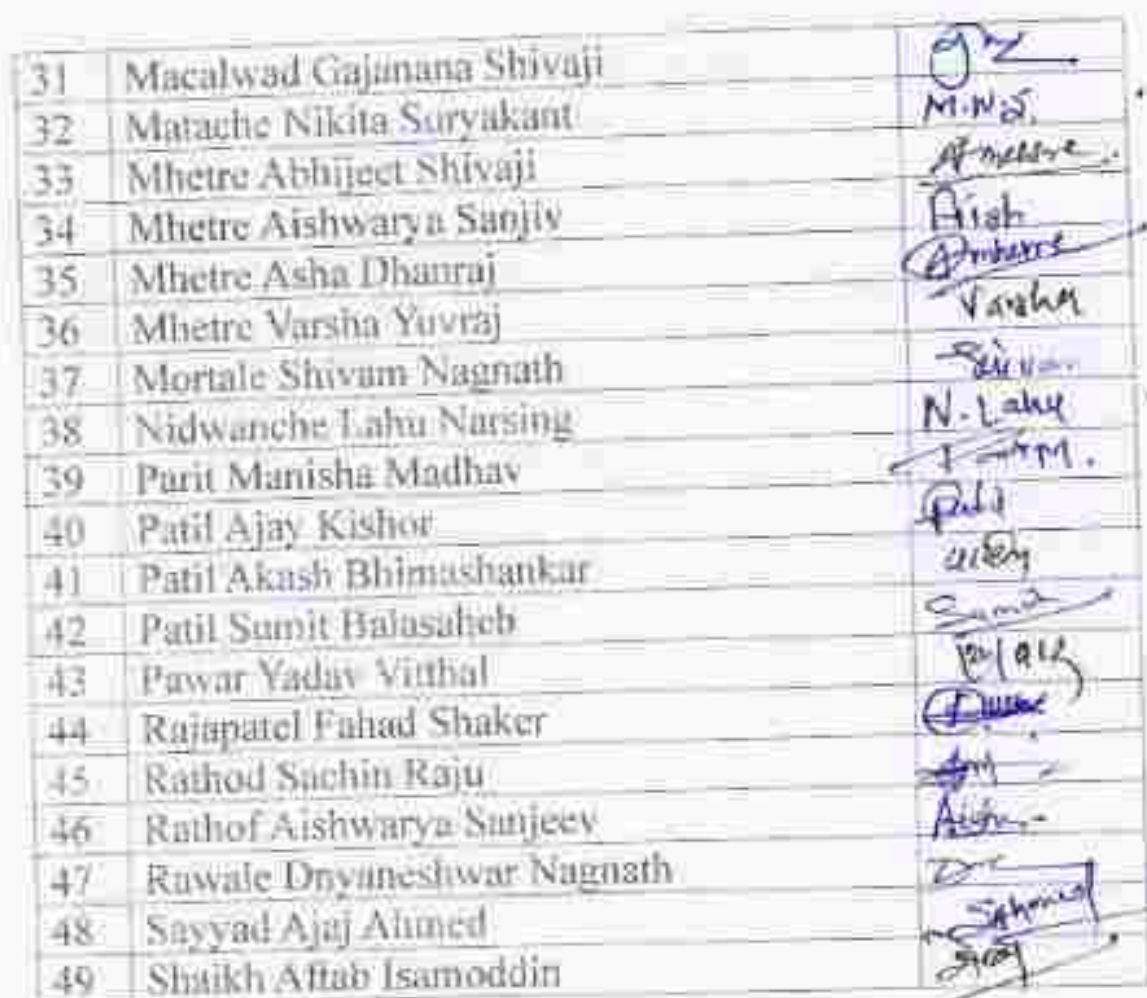 31 Macalwad Gajanana Shivaji
32 Matache Nikita Suryakant M.N.S.
33 Mhetre Abhijeet Shivaji
34 Mhetre Aishwarya Sanjiv Aish
35 Mhetre Asha Dhanraj Amhetre
36 Mhetre Varsha Yuvraj Varsha
37 Mortale Shivam Nagnath
38 Nidwanche Lahu Narsing N. Lahu
39 Parit Manisha Madhav
40 Patil Ajay Kishor Patil
41 Patil Akash Bhimashankar
42 Patil Sumit Balasaheb Sumit
43 Pawar Yadav Vitthal
44 Rajapatel Fahad Shaker
45 Rathod Sachin Raju
46 Rathof Aishwarya Sanjeev
47 Rawale Dnyaneshwar Nagnath
48 Sayyad Ajaj Ahmed
49 Shaikh Aftab Isamoddin